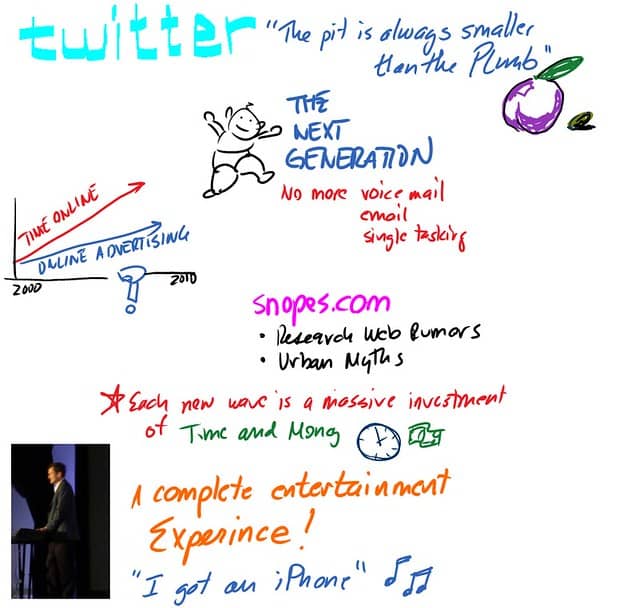 twitter
"The pit is always smaller
than the Plumb"
THE
NEXT
GENERATION
No more voice mail
email
single tasking
TIME ONLINE
ONLINE ADVERTISING
2000
2010
?
snopes.com
• Research Web Rumors
• Urban Myths
Each new wave is a massive investment
of Time and Mony
A complete entertainment
Experince!
"I got an iPhone"